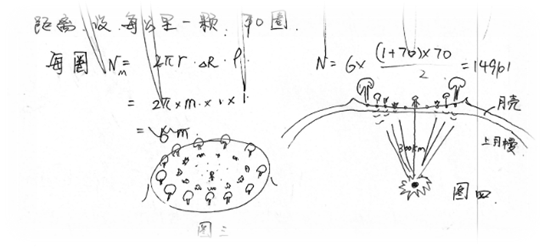 距离,设每公里一颗,70圈
每圈 Nm = 2πr·ΔR·ρ
= 2π×m×1×1
= 6m
N = 6× (1+70)×70 / 2 = 14910
月壳
上月幔
300km
图三
图四